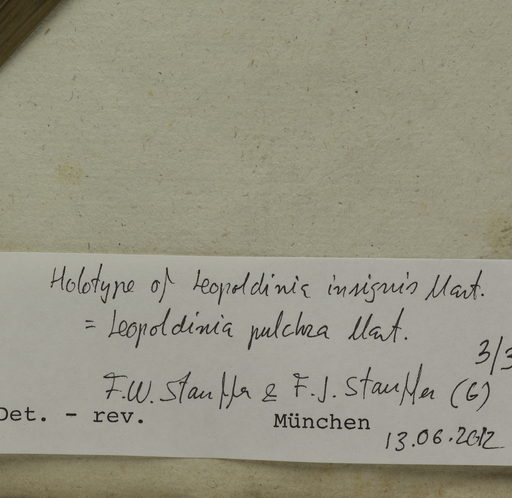 Holotype of Leopoldinia insignis Mart.
= Leopoldinia pulchra Mart.
3/3
F.W. Stauffer & F.J. Stauffer (G)
Det. - rev. München
13.06.2012